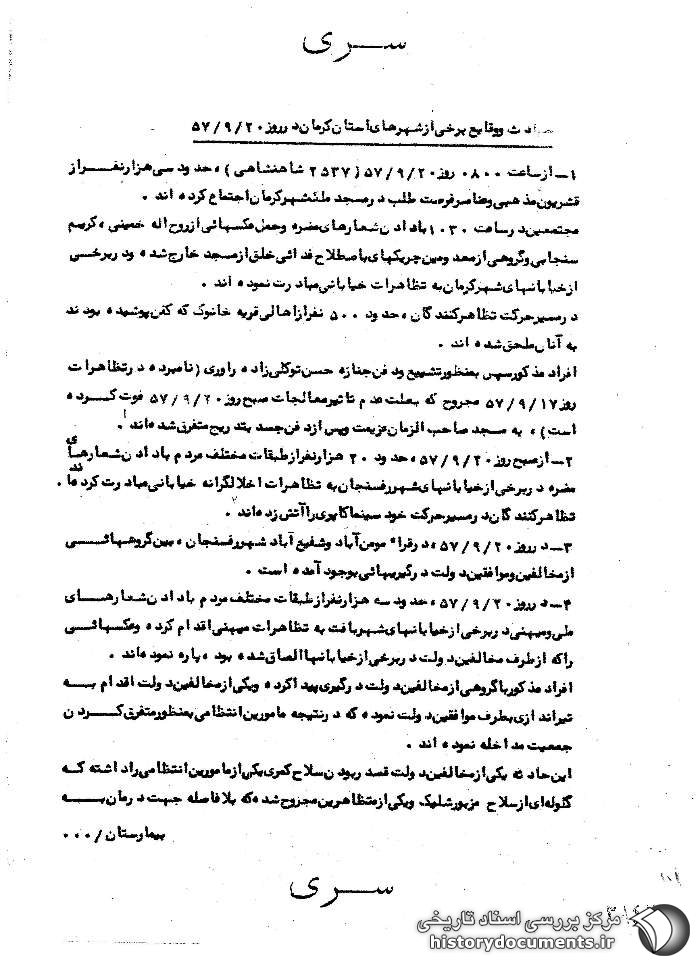 سری
حوادث و وقایع برخی از شهرهای استان کرمان در روز ۵۷/۹/۲۰
۱ـ از ساعت ۰۸۰۰ روز ۵۷/۹/۲۰ (۲۵۳۷ شاهنشاهی)، حدود سی هزار نفر از
قشریون مذهبی و عناصر فرصت طلب در مسجد ملک شهر کرمان اجتماع کرده اند.
مجتمعین در ساعت ۱۰۳۰ با دادن شعارهای مضره و حمل عکسهائی از روح اله خمینی، کریم
سنجابی و گروهی از معدومین چریکهای باصطلاح فدائی خلق از مسجد خارج شده و در برخی
از خیابانهای شهر کرمان به تظاهرات خیابانی مبادرت نموده اند.
در مسیر حرکت تظاهرکنندگان، حدود ۵۰۰ نفر از اهالی قریه خانوک که کفن پوشیده بودند
به آنان ملحق شده اند.
افراد مذکور سپس بمنظور تشییع و دفن جنازه حسن توکلی زاده راوری (نامبرده در تظاهرات
روز ۵۷/۹/۱۷ مجروح که بعلت عدم تاثیر معالجات صبح روز ۵۷/۹/۲۰ فوت کرده
است)، به مسجد صاحب الزمان عزیمت و پس از دفن جسد بتدریج متفرق شده اند.
۲ـ از صبح روز ۵۷/۹/۲۰، حدود ۲۰ هزار نفر از طبقات مختلف مردم با دادن شعارهای
مضره در برخی از خیابانهای شهر رفسنجان به تظاهرات اخلالگرانه خیابانی مبادرت کرده اند.
تظاهرکنندگان در مسیر حرکت خود سینما کاپری را آتش زده اند.
۳ـ در روز ۵۷/۹/۲۰، در قراء مومن آباد و شفیع آباد شهر رفسنجان، بین گروههائی
از مخالفین و موافقین دولت درگیریهائی بوجود آمده است.
۴ـ در روز ۵۷/۹/۲۰، حدود سه هزار نفر از طبقات مختلف مردم با دادن شعارهای
ملی و میهنی در برخی از خیابانهای شهر بافت به تظاهرات میهنی اقدام کرده و عکسهائی
را که از طرف مخالفین دولت در برخی از خیابانها الصاق شده بود، پاره نموده اند.
افراد مذکور با گروهی از مخالفین دولت درگیری پیدا کرده و یکی از مخالفین دولت اقدام به
تیراندازی بطرف موافقین دولت نموده که در نتیجه مامورین انتظامی بمنظور متفرق کردن
جمعیت مداخله نموده اند.
این حادثه یکی از مخالفین دولت قصد ربودن سلاح کمری یکی از مامورین انتظامی را داشته که
گلوله ای از سلاح مزبور شلیک و یکی از متظاهرین مجروح شده که بلافاصله جهت درمان به
بیمارستان / ۰۰۰
سری
مرکز بررسی اسناد تاریخی
historydocuments.ir